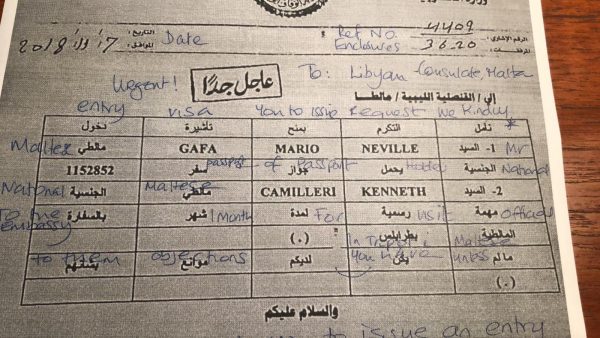 Ref NO. 4409 الرقم الإشاري
Enclosures 36.20
التاريخ:
الموافق: Date
Urgent! عاجل جدًا To: Libyan Consulate Malta
إلي/ القنصلية الليبية/ مالطا
entry visa you to issue Request We Kindly
نأمل التكرم بمنح تأشيرة دخول
1- السيد NEVILLE MARIO GAFA مالطي
Maltese Mr
الجنسية يحمل جواز سفر 1152852
passport of Passport holder National
2- السيد KENNETH CAMILLERI مالطي الجنسية
National Maltese
مهمة رسمية لمدة شهر بالسفارة
To the embassy 1 month For visit Official
المالطية بطرابلس (.)
In Tripoli Maltese
مالم يكن لديكم موانع بشأنهم
to them objections you have unless
(.)
والسلام عليكم
to issue an entry